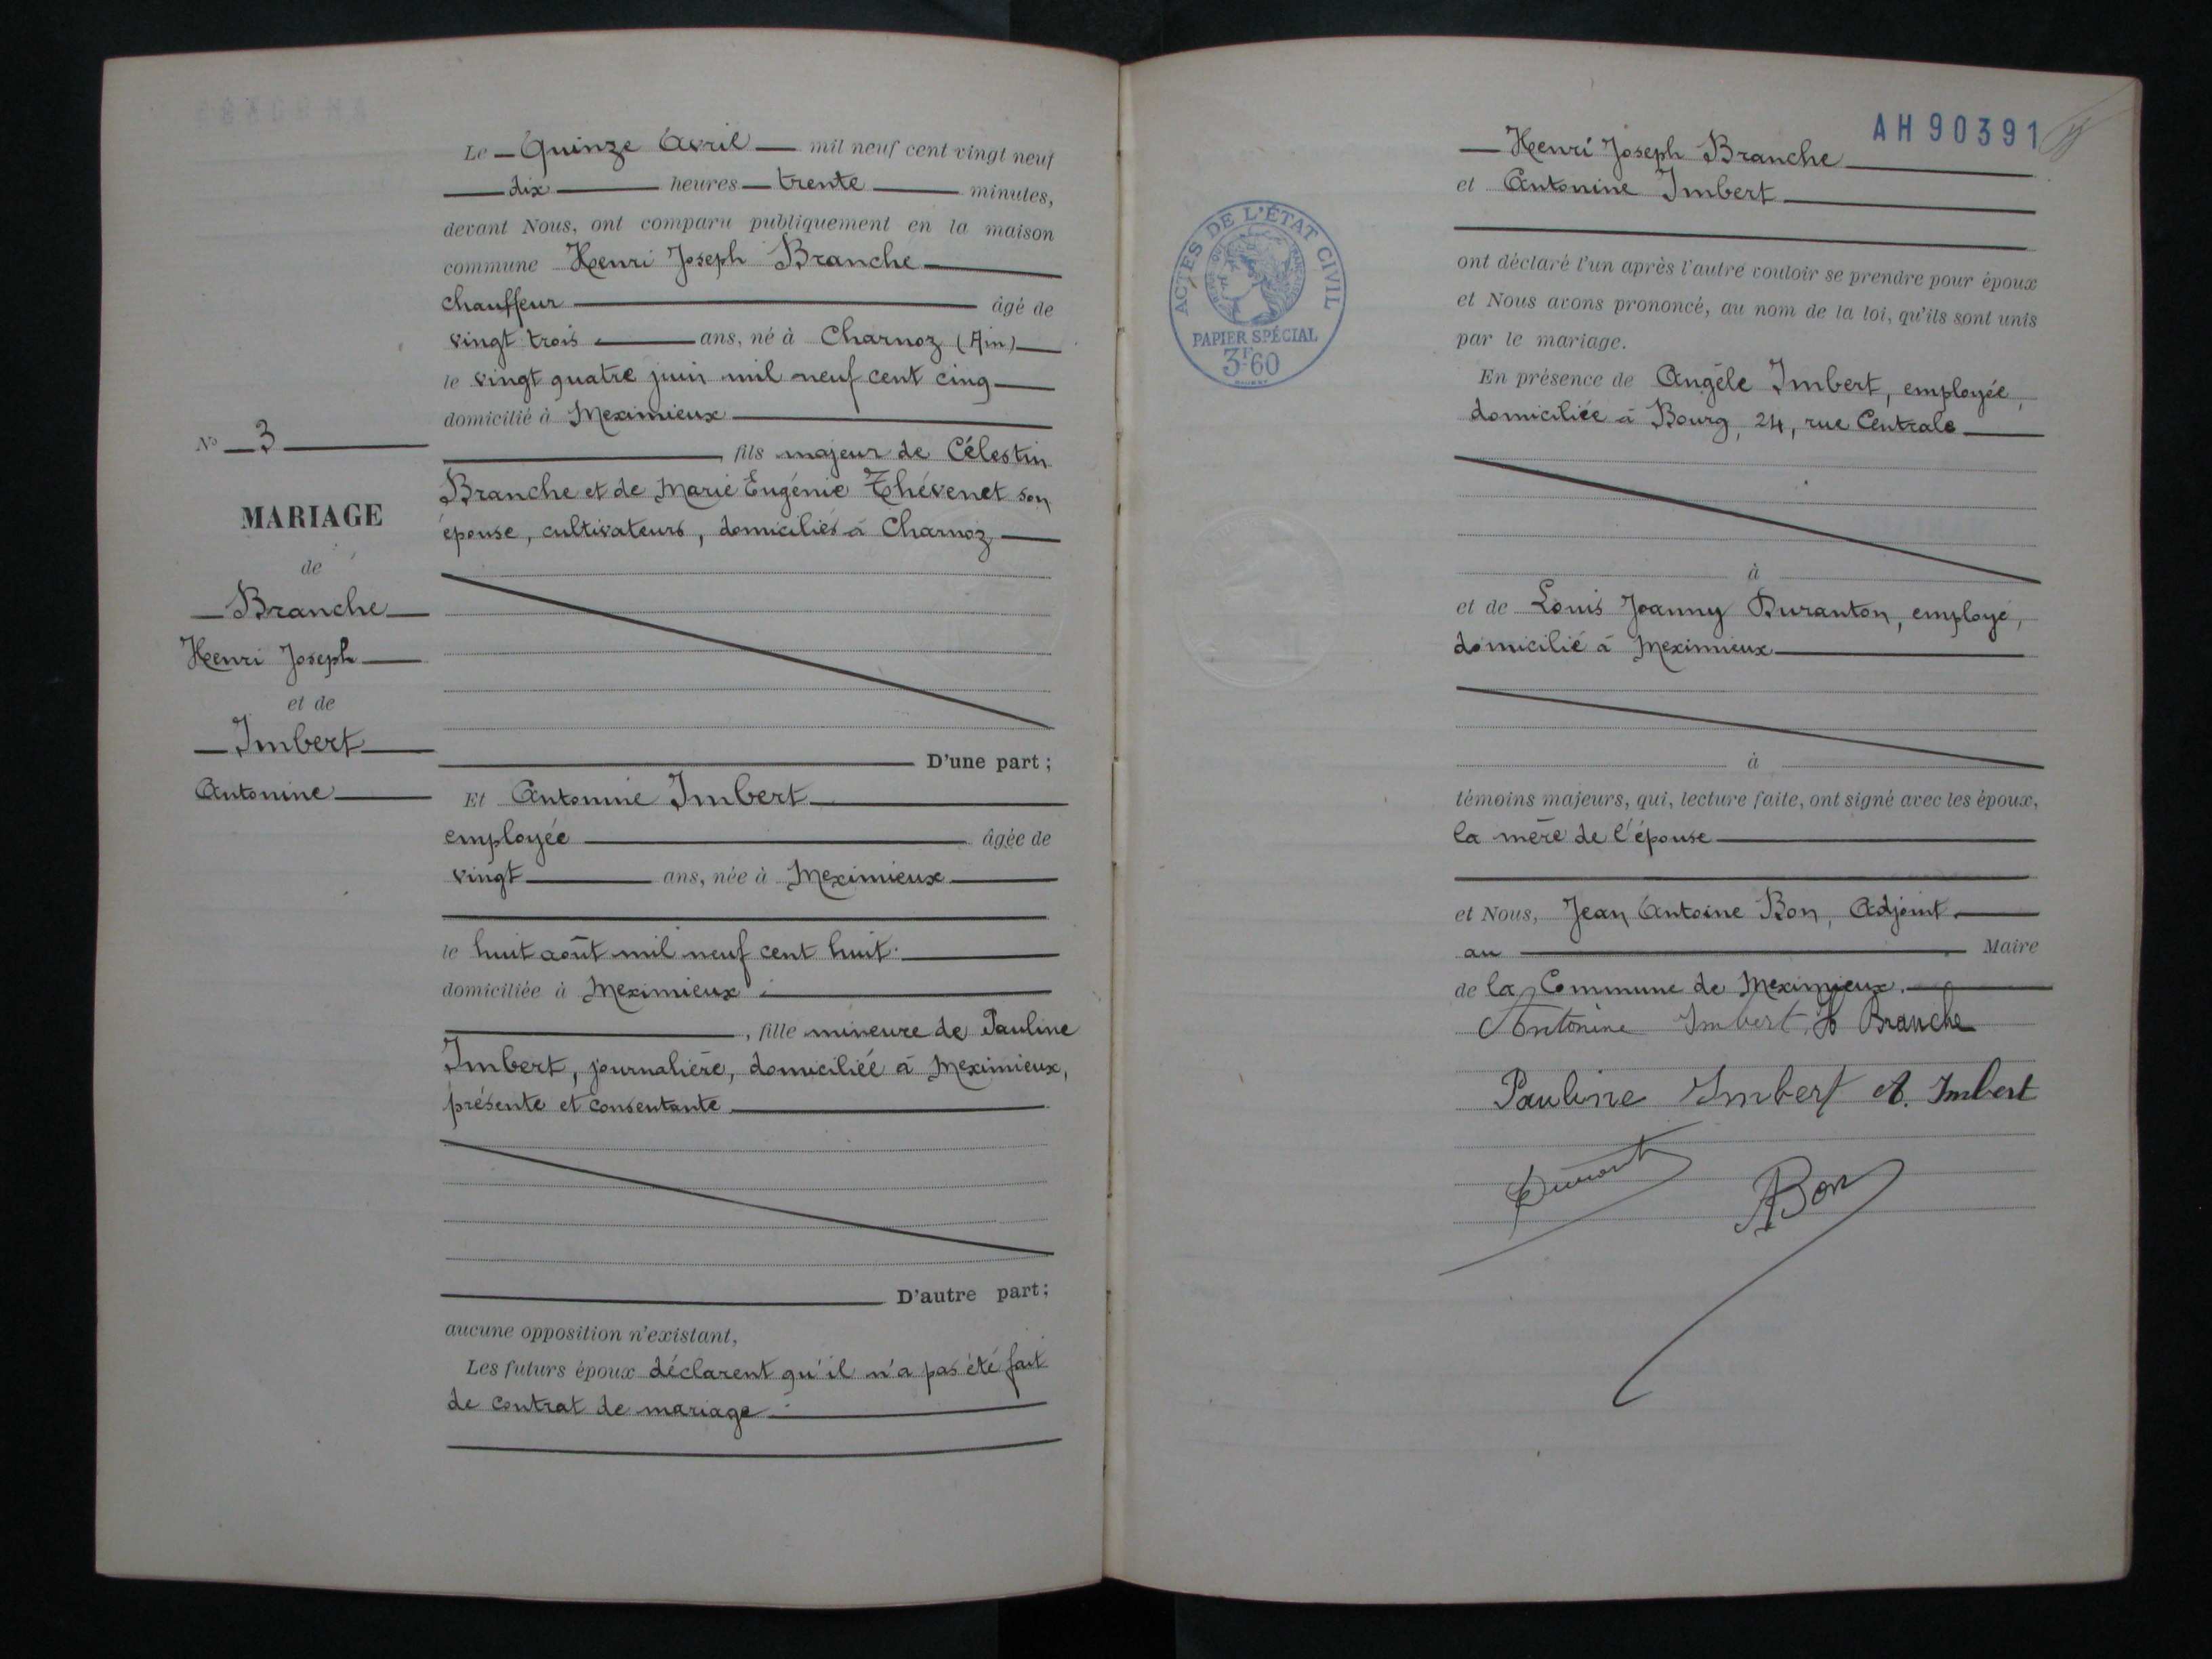 Le Quinze Avril mil neuf cent vingt neuf
dix heures trente minutes,
devant Nous, ont comparu publiquement en la maison
commune Henri Joseph Branche
chauffeur âgé de
vingt trois ans, né à Charnoz (Ain)
le vingt quatre juin mil neuf cent cinq
domicilié à Meximieux
fils majeur de Célestin
Branche et de Marie Eugénie Thévenet son
épouse, cultivateurs, domiciliés à Charnoz
N° 3
MARIAGE
de
Branche
Henri Joseph
et de
Imbert
Antonine
D'une part;
Et Antonine Imbert
employée âgée de
vingt ans, née à Meximieux
le huit août mil neuf cent huit
domiciliée à Meximieux
, fille mineure de Pauline
Imbert, journalière, domiciliée à Meximieux,
présente et consentante
D'autre part;
aucune opposition n'existant,
Les futurs époux déclarent qu'il n'a pas été fait
de contrat de mariage
AH90391
Henri Joseph Branche
et Antonine Imbert
ACTES DE L'ÉTAT CIVIL
PAPIER SPÉCIAL
3F60
ont déclaré l'un après l'autre vouloir se prendre pour époux
et Nous avons prononcé, au nom de la loi, qu'ils sont unis
par le mariage.
En présence de Angèle Imbert, employée,
domiciliée à Bourg, 24, rue Centrale
à
et de Louis Joanny Duranton, employé,
domicilié à Meximieux
à
témoins majeurs, qui, lecture faite, ont signé avec les époux,
la mère de l'épouse
et Nous, Jean Antoine Bon, Adjoint
au Maire
de la Commune de Meximieux.
Antonine Imbert H Branche
Pauline Imbert A. Imbert
ABon